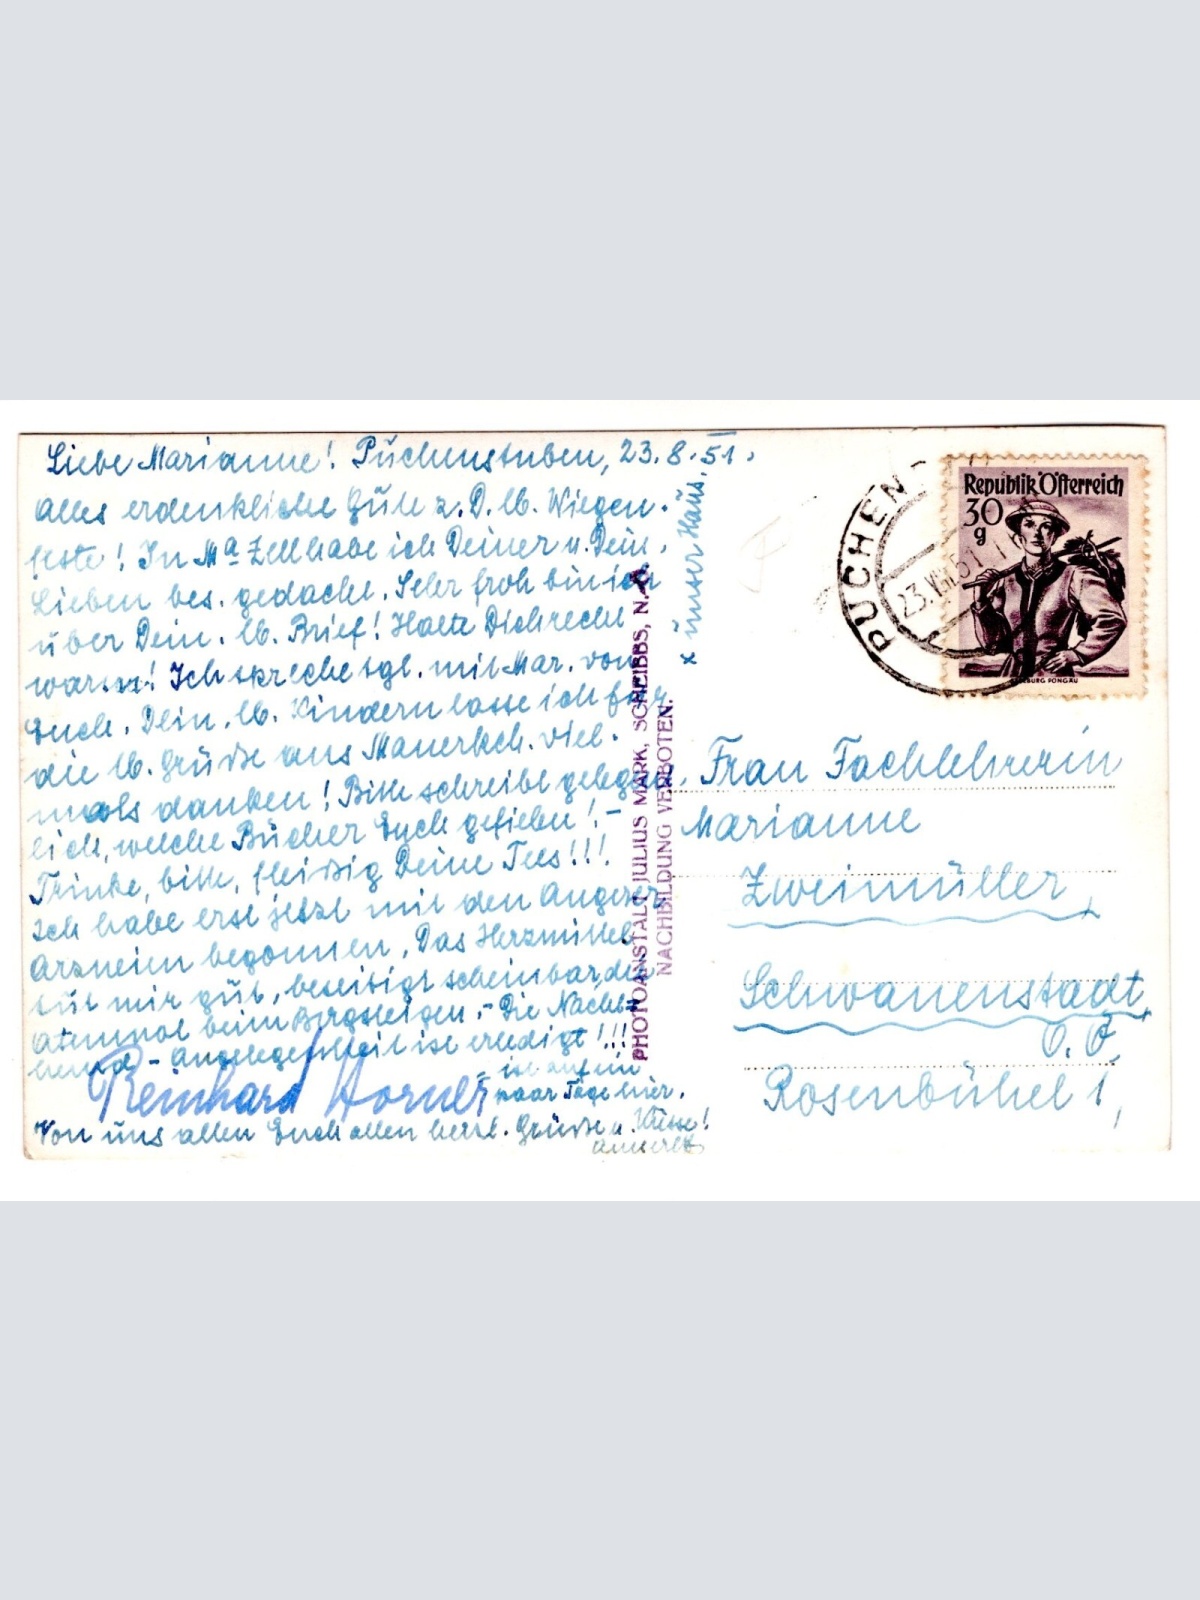 Liebe Marianne! Puchenstuben, 23.8.51.
Alles erdenkliche Gute z. D. lb. Wiegen-
feste! In Ma Zell habe ich Deiner u. Dein.
Lieben bes. gedacht. Sehr froh bin ich
über Dein. lb. Brief! Halte Dich recht
warm! Ich spreche tgl. mit Mar. von
Euch. Dein. lb. Kindern lasse ich für
die lb. Grüße aus Mauerkch. viel-
mals danken! Bitte schreibe gelegent-
lich, welche Bücher Euch gefielen! -
Trinke, bitte, fleißig Deine Tees!!!
Ich habe erst jetzt mit den Angerer
Arzneien begonnen. Das Herzmittel
tut mir gut, beseitigt scheinbar die
Atemnot beim Bergsteigen. - Die Nacht-
hemd-Angelegenheit ist erledigt!!!
Reinhard Horner
ist auf ein
paar Tage hier.
Von uns allen Euch allen herzl. Grüße u. Küsse!
x unser Haus.
PHOTOANSTALT JULIUS MARK, SCHEIBBS, N.Ö.
NACHBILDUNG VERBOTEN.
PUCHEN
23.VIII.51
Republik Österreich
30
g
SALZBURG PONGAU
Frau Fachlehrerin
Marianne
Zweimüller,
Schwanenstadt,
O. Ö.
Rosenbühel 1,